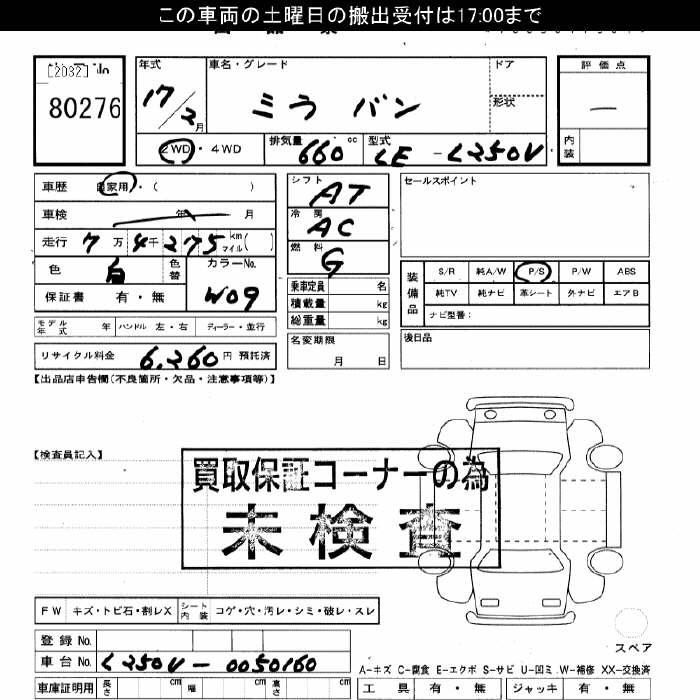 この車両の土曜日の搬出受付は17:00まで
[2032] No
80276
年式 17/2月
車名・グレード ミラ バン
ドア
形状
評価点 —
内装
2WD・4WD
排気量 660 cc
型式 LE-L250V
車歴 自家用・( )
車検 年 月
走行 7万4千275 km マイル( )
色 白 色替
カラーNo. W09
保証書 有・無
シフト AT
冷房 AC
燃料 G
乗車定員 名
積載量 kg
総重量 kg
セールスポイント
装備品
S/R 純A/W P/S P/W ABS
純TV 純ナビ 革シート 外ナビ エアB
ナビ型番:
モデル年式 年 ハンドル 左・右 ディーラー・並行
名変期限 月 日
後日品
リサイクル料金 6,260 円 預託済
【出品店申告欄(不良箇所・欠品・注意事項等)】
【検査員記入】
買取保証コーナーの為
未検査
FW キズ・トビ石・割レX
シート内装 コゲ・穴・汚レ・シミ・破レ・スレ
スペア
登録No.
車台No. L250V-0050160
A-キズ C-腐食 E-エクボ S-サビ U-凹ミ W-補修 XX-交換済
車庫証明用 長さ cm 幅 cm 高さ cm
工具 有・無 ジャッキ 有・無